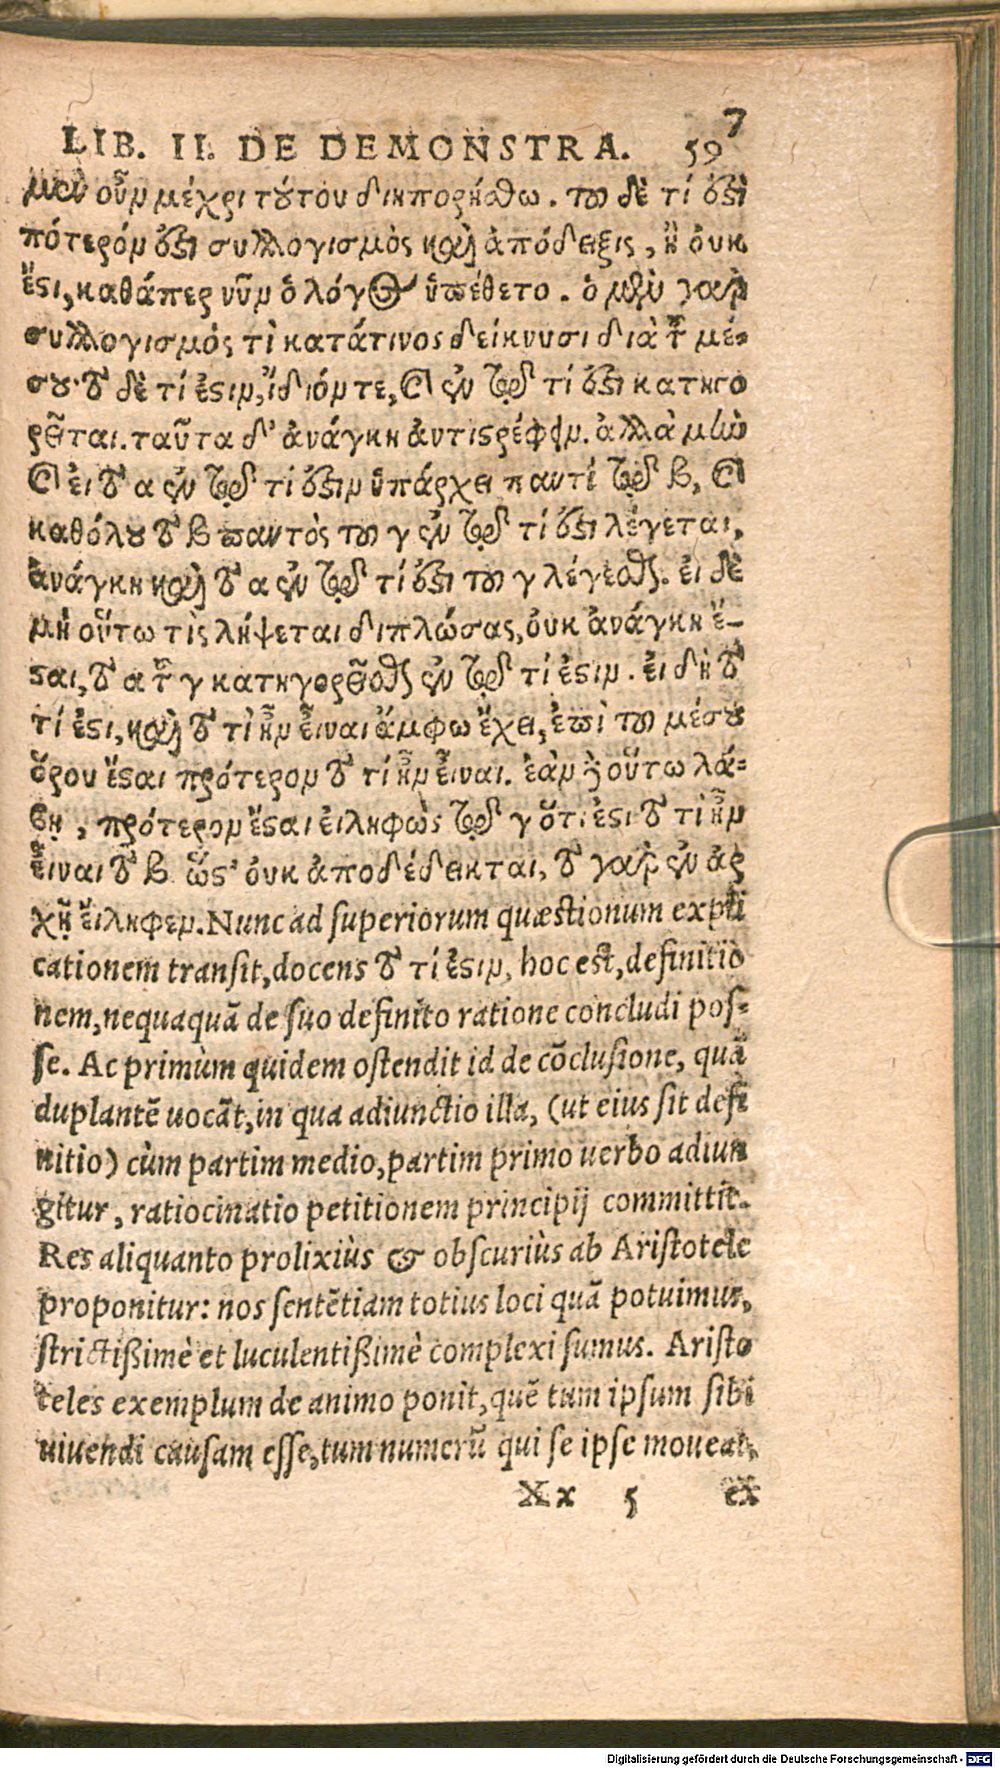 LIB. II. DE DEMONSTRA. 597
μὲν οὖν μέχρι τούτου διηπορήσθω. τοῦ δὲ τί ἐστὶ
πότερόν ἐστι συλλογισμὸς καὶ ἀπόδειξις, ἢ οὐκ
ἔστι, καθάπερ νῦν ὁ λόγος ὑπέθετο. ὁ μὲν γὰρ
συλλογισμός τὶ κατάτινος δείκνυσι διὰ τοῦ μέ-
σου· τὸ δὲ τί ἐστιν, ἴδιόν τε, καὶ ἐν τῷ τί ἐστι κατηγο
ρεῖται. ταῦτα δ' ἀνάγκη ἀντιστρέφειν. ἀλλὰ μὴν
καὶ εἰ τὸ α ἐν τῷ τί ἐστιν ὑπάρχει παντί τῷ β, καὶ
καθόλου τὸ β παντὸς τοῦ γ ἐν τῷ τί ἐστι λέγεται,
ἀνάγκη καὶ τὸ α ἐν τῷ τί ἐστι τοῦ γ λέγεσθαι. εἰ δὲ
μὴ οὕτω τὶς λήψεται διπλώσας, οὐκ ἀνάγκη ἔ-
σται, τὸ α τοῦ γ κατηγορεῖσθαι ἐν τῷ τί ἐστιν. εἰ δὴ τὸ
τί ἐστι, καὶ τὸ τὶ ἦν εἶναι ἄμφω ἔχει, ἐπὶ τοῦ μέσου
ὅρου ἔσται πρότερον τὸ τί ἦν εἶναι. ἐὰν δὲ οὕτω λά-
βῃ, πρότερον ἔσται εἰληφὼς τῷ γ ὅτι ἐστι τὸ τὶ ἦν
εἶναι τὸ β ὥστ' οὐκ ἀποδέδεικται, τὸ γὰρ ἐν ἀρ
χῇ εἴληφεν. Nunc ad superiorum quæstionum expli
cationem transit, docens τὸ τί ἐστιν, hoc est, definitio
nem, nequaquã de suo definito ratione concludi pos-
se. Ac primùm quidem ostendit id de cõclusione, quã
duplantẽ uocãt, in qua adiunctio illa, (ut eius sit defi
nitio) cùm partim medio, partim primo uerbo adiun
gitur, ratiocinatio petitionem principij committit.
Res aliquanto prolixiùs & obscuriùs ab Aristotele
proponitur: nos sentẽtiam totius loci quã potuimus,
strictißimè et luculentißimè complexi sumus. Aristo
teles exemplum de animo ponit, quẽ tum ipsum sibi
uiuendi causam esse, tum numerũ qui se ipse moueat,
Xx 5 ex
Digitalisierung gefördert durch die Deutsche Forschungsgemeinschaft - DFG